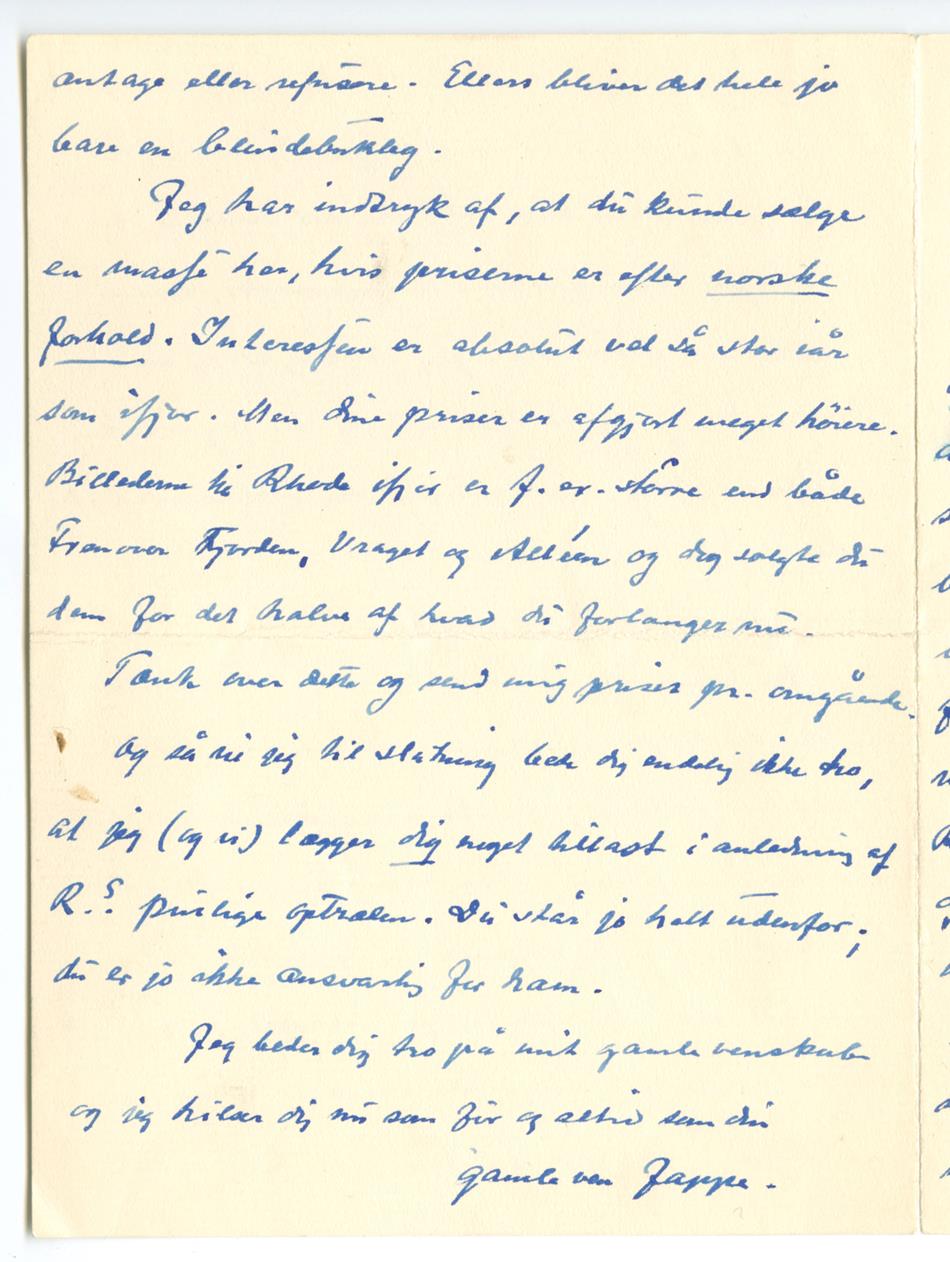 antage eller refusere. Ellers bliver det hele jo
bare en blindebukleg.
Jeg har indtryk af, at du kunde sælge
en masse her, hvis priserne er efter norske
forhold. Interessen er absolut vel så stor iår
som ifjor. Men dine priser er afgjort meget höiere.
Billederne til Rhode ifjor er f. ex. större end både
Fremover Fjorden, Vraget og Alléen og dog solgte du
dem for det halve af hvad du forlanger nu.
Tænk over dette og send mig priser pr. omgående.
Og så vil jeg til slutning bede dig endelig ikke tro,
at jeg (og vi) lægger dig noget tillast i anledning af
R.s. pinlige optræden. Du står jo helt udenfor;
du er jo ikke ansvarlig for ham.
Jeg beder dig tro på mit gamle venskab
og jeg hilser dig nu som för og altid som din
gamle ven Jappe.